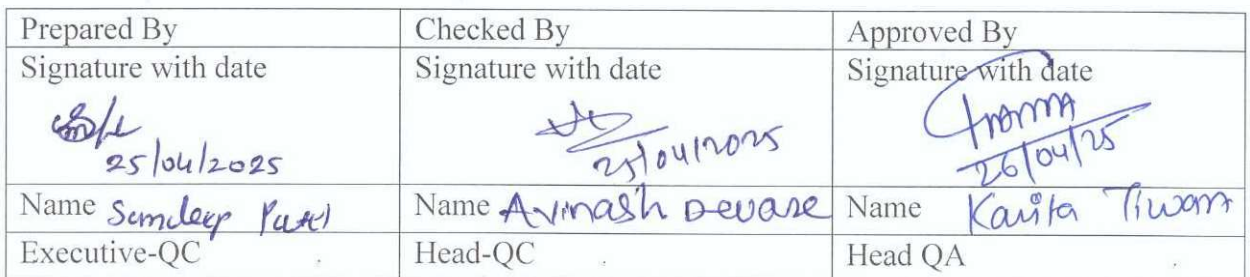 Prepared By Checked By Approved By
Signature with date Signature with date Signature with date
25/04/2025 25/04/2025 26/04/25
Name Sandeep Patil Name Avinash Devare Name Kavita Tiwari
Executive-QC Head-QC Head QA